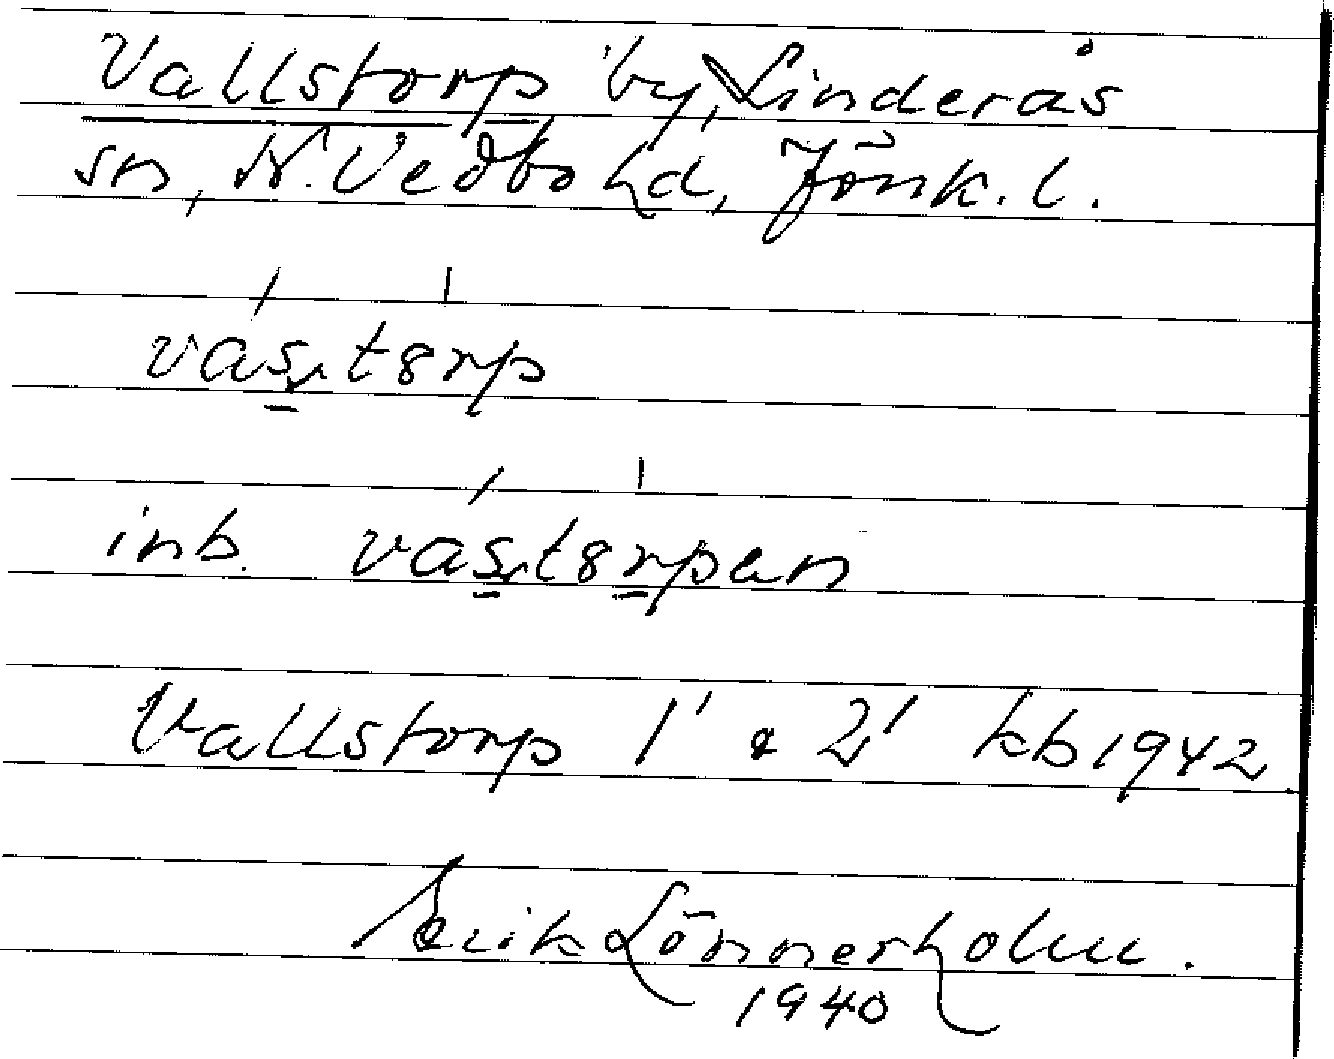 Vallstorp by, Linderås
sn, N. Vedbo hd, Jönk. l.
vás̱ţtȣrp
inb. vás̱ţtȣrpan
Vallstorp 1' & 2' kb 1942.
Erik Lönnerholm.
1940